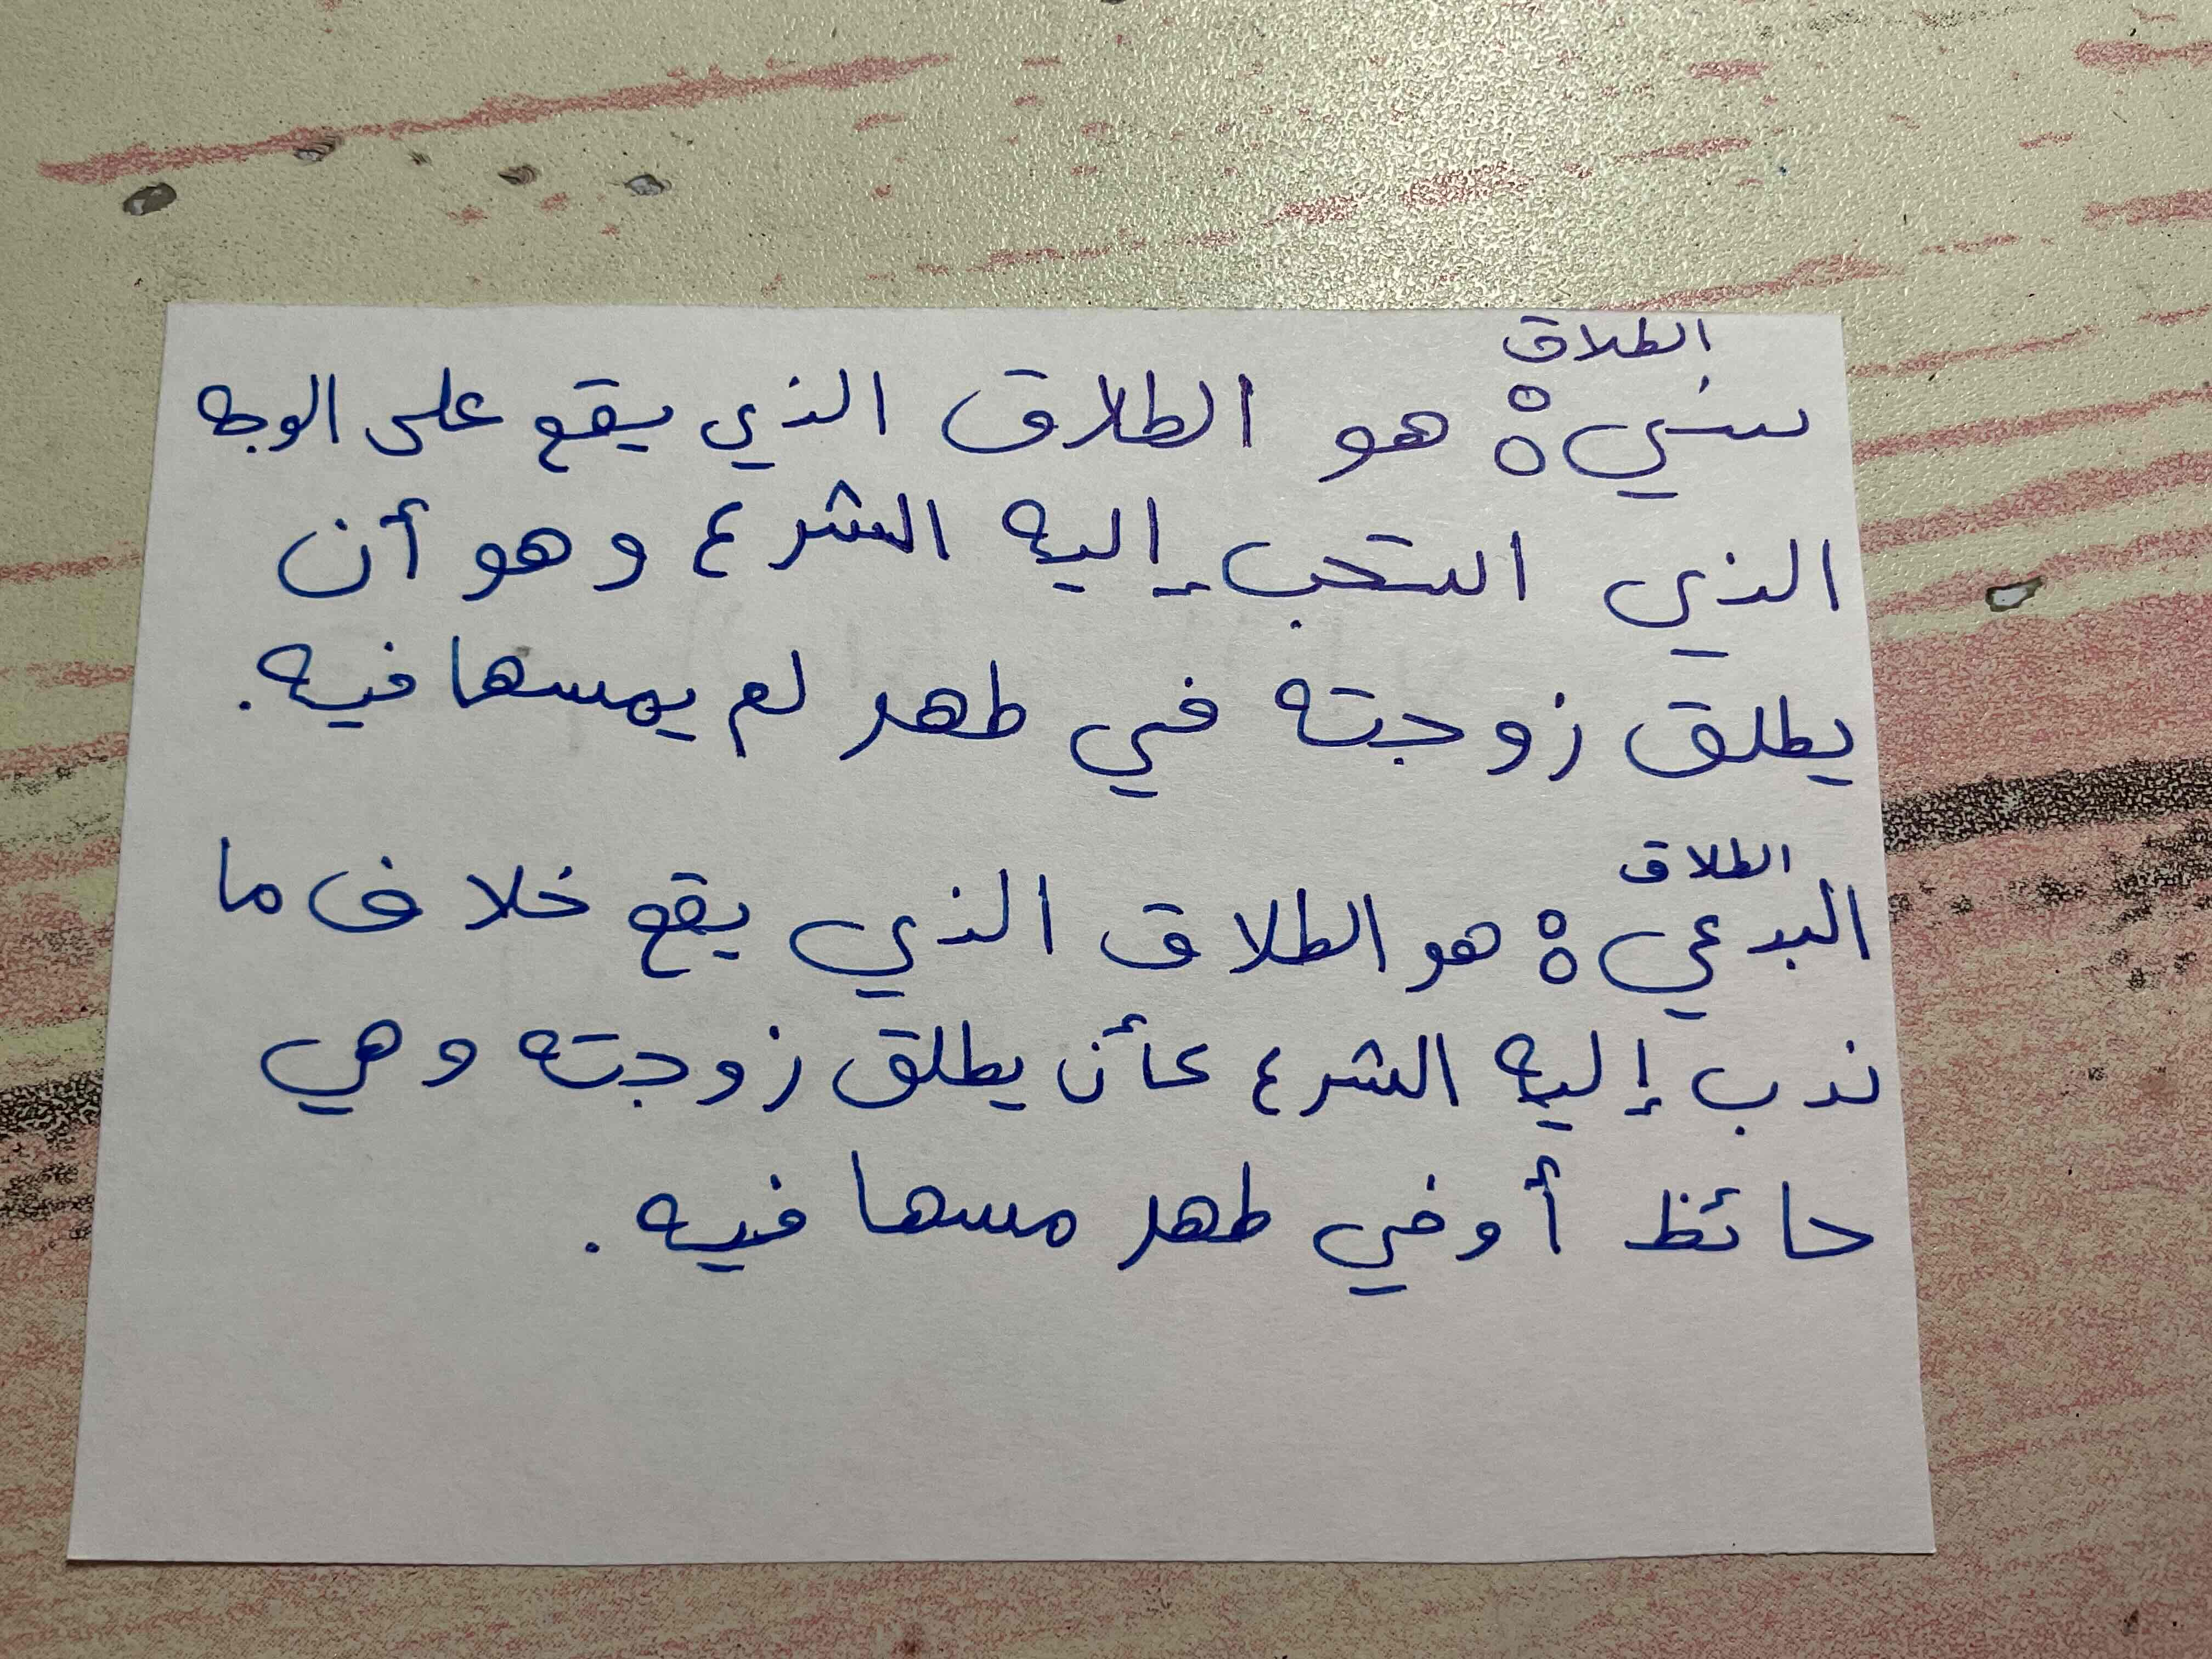 الطلاق
سني: هو الطلاق الذي يقع على الوجه
الذي استحب إليه الشرع وهو أن
يطلق زوجته في طهر لم يمسها فيه.
الطلاق
البدعي: هو الطلاق الذي يقع خلاف ما
ندب إليه الشرع كأن يطلق زوجته وهي
حائظ أو في طهر مسها فيه.